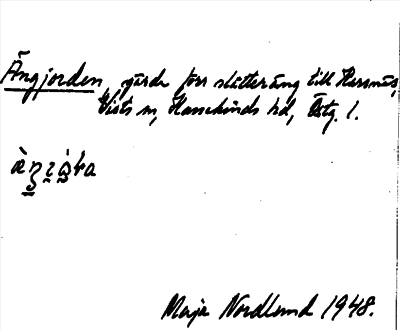 Ängjorden, gärde förr slåtteräng till Hersnäs,
Vists sn, Hanekinds hd, Östg. l.
Maja Nordlund 1948.